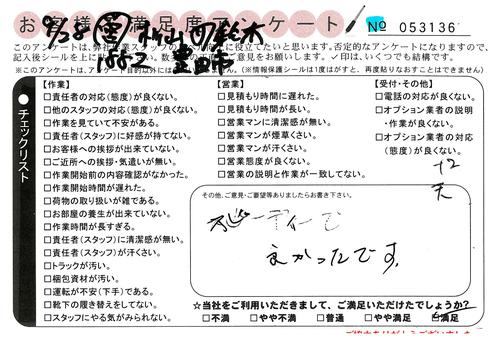 お客様満足度アンケート
№ 053136
9/28 金
このアンケートは、弊社
に役立てたいと思います。否定的なアンケートになりますので、
記入後シールを上に
意見をお願いします。✓印は、いくつでも結構です。
※このアンケートは、アンケート目的以外には
(※情報保護シールは1度がすと、再度貼りなおすことはできません)
チェックリスト
【作業】
□責任者の対応(態度)が良くない。
□他のスタッフの対応(態度)が良くない。
□作業を見ていて不安がある。
□責任者(スタッフ)に好感が持てない。
□お客様への挨拶が出来ていない。
□ご近所への挨拶・気遣いが無い。
□作業開始前の内容確認がなかった。
□作業開始時間が遅れた。
□荷物の取り扱いが雑である。
□お部屋の養生が出来ていない。
□作業時間が長すぎる。
□責任者(スタッフ)に清潔感が無い。
□責任者(スタッフ)が汗くさい。
□トラックが汚い。
□梱包資材が汚い。
□運転が不安(下手)である。
□靴下の履き替えをしてない。
□スタッフにやる気がみられない。
【営業】
□見積もり時間に遅れた。
□見積もり時間が長い。
□営業マンに清潔感が無い。
□営業マンが煙草くさい。
□営業マンが汗くさい。
□営業態度が良くない。
□営業の説明と作業が一致してない。
【受付・その他】
□電話の対応が良くない。
□オプション業者の説明
・作業が良くない。
□オプション業者の対応
(態度)が良くない。
その他、ご意見・ご要望等ありましたらお書き下さい。
スピーディーで
良かったです。
☆当社をご利用いただきまして、ご満足いただけたでしょうか?
□不満 □やや不満 □普通 □やや満足 ☑満足